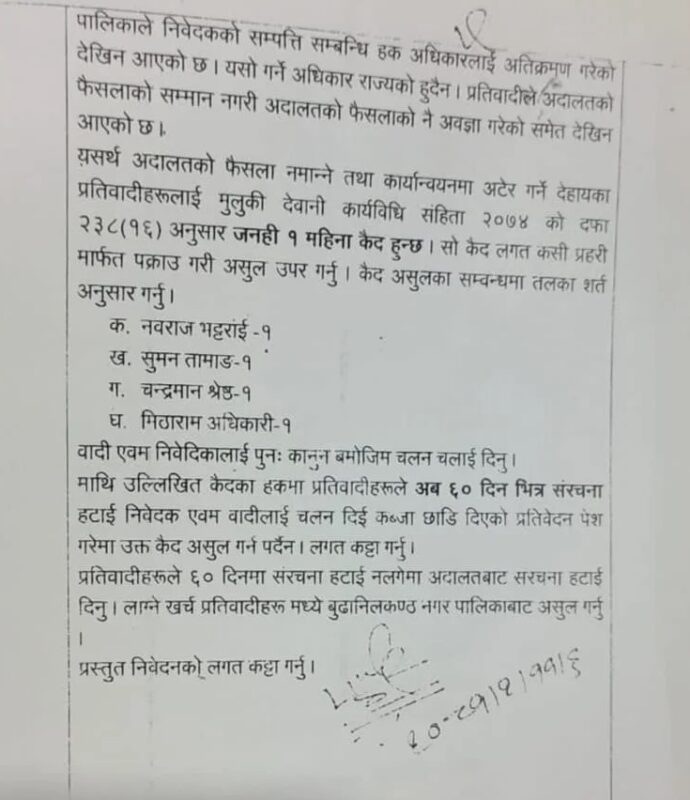 पालिकाले निवेदकको सम्पत्ति सम्बन्धि हक अधिकारलाई अतिक्रमण गरेको
देखिन आएको छ । यसो गर्ने अधिकार राज्यको हुदैन । प्रतिवादीले अदालतको
फैसलाको सम्मान नगरी अदालतको फैसलाको नै अवज्ञा गरेको समेत देखिन
आएको छ ।
यसर्थ अदालतको फैसला नमान्ने तथा कार्यान्वयनमा अटेर गर्ने देहायका
प्रतिवादीहरूलाई मुलुकी देवानी कार्यविधि संहिता २०७४ को दफा
२३८(१६) अनुसार जनही १ महिना कैद हुन्छ । सो कैद लगत कसी प्रहरी
मार्फत पक्राउ गरी असुल उपर गर्नु । कैद असुलका सम्वन्धमा तलका शर्त
अनुसार गर्नु ।
क. नवराज भट्टराई -१
ख. सुमन तामाङ-१
ग. चन्द्रमान श्रेष्ठ-१
घ. मिठाराम अधिकारी-१
वादी एवम निवेदिकालाई पुनः कानुन बमोजिम चलन चलाई दिनु ।
माथि उल्लिखित कैदका हकमा प्रतिवादीहरूले अब ६० दिन भित्र संरचना
हटाई निवेदक एवम वादीलाई चलन दिई कब्जा छाडि दिएको प्रतिवेदन पेश
गरेमा उक्त कैद असुल गर्न पर्दैन । लगत कट्टा गर्नु ।
प्रतिवादीहरूले ६० दिनमा संरचना हटाई नलगेमा अदालतबाट सरचना हटाई
दिनु । लाग्ने खर्च प्रतिवादीहरू मध्ये बुढानिलकण्ठ नगर पालिकाबाट असुल गर्नु
।
प्रस्तुत निवेदनको लगत कट्टा गर्नु ।